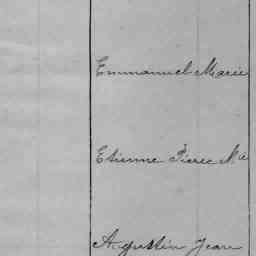 Emmanuel Marie
Etienne Pierre Mie
Augustin Jean